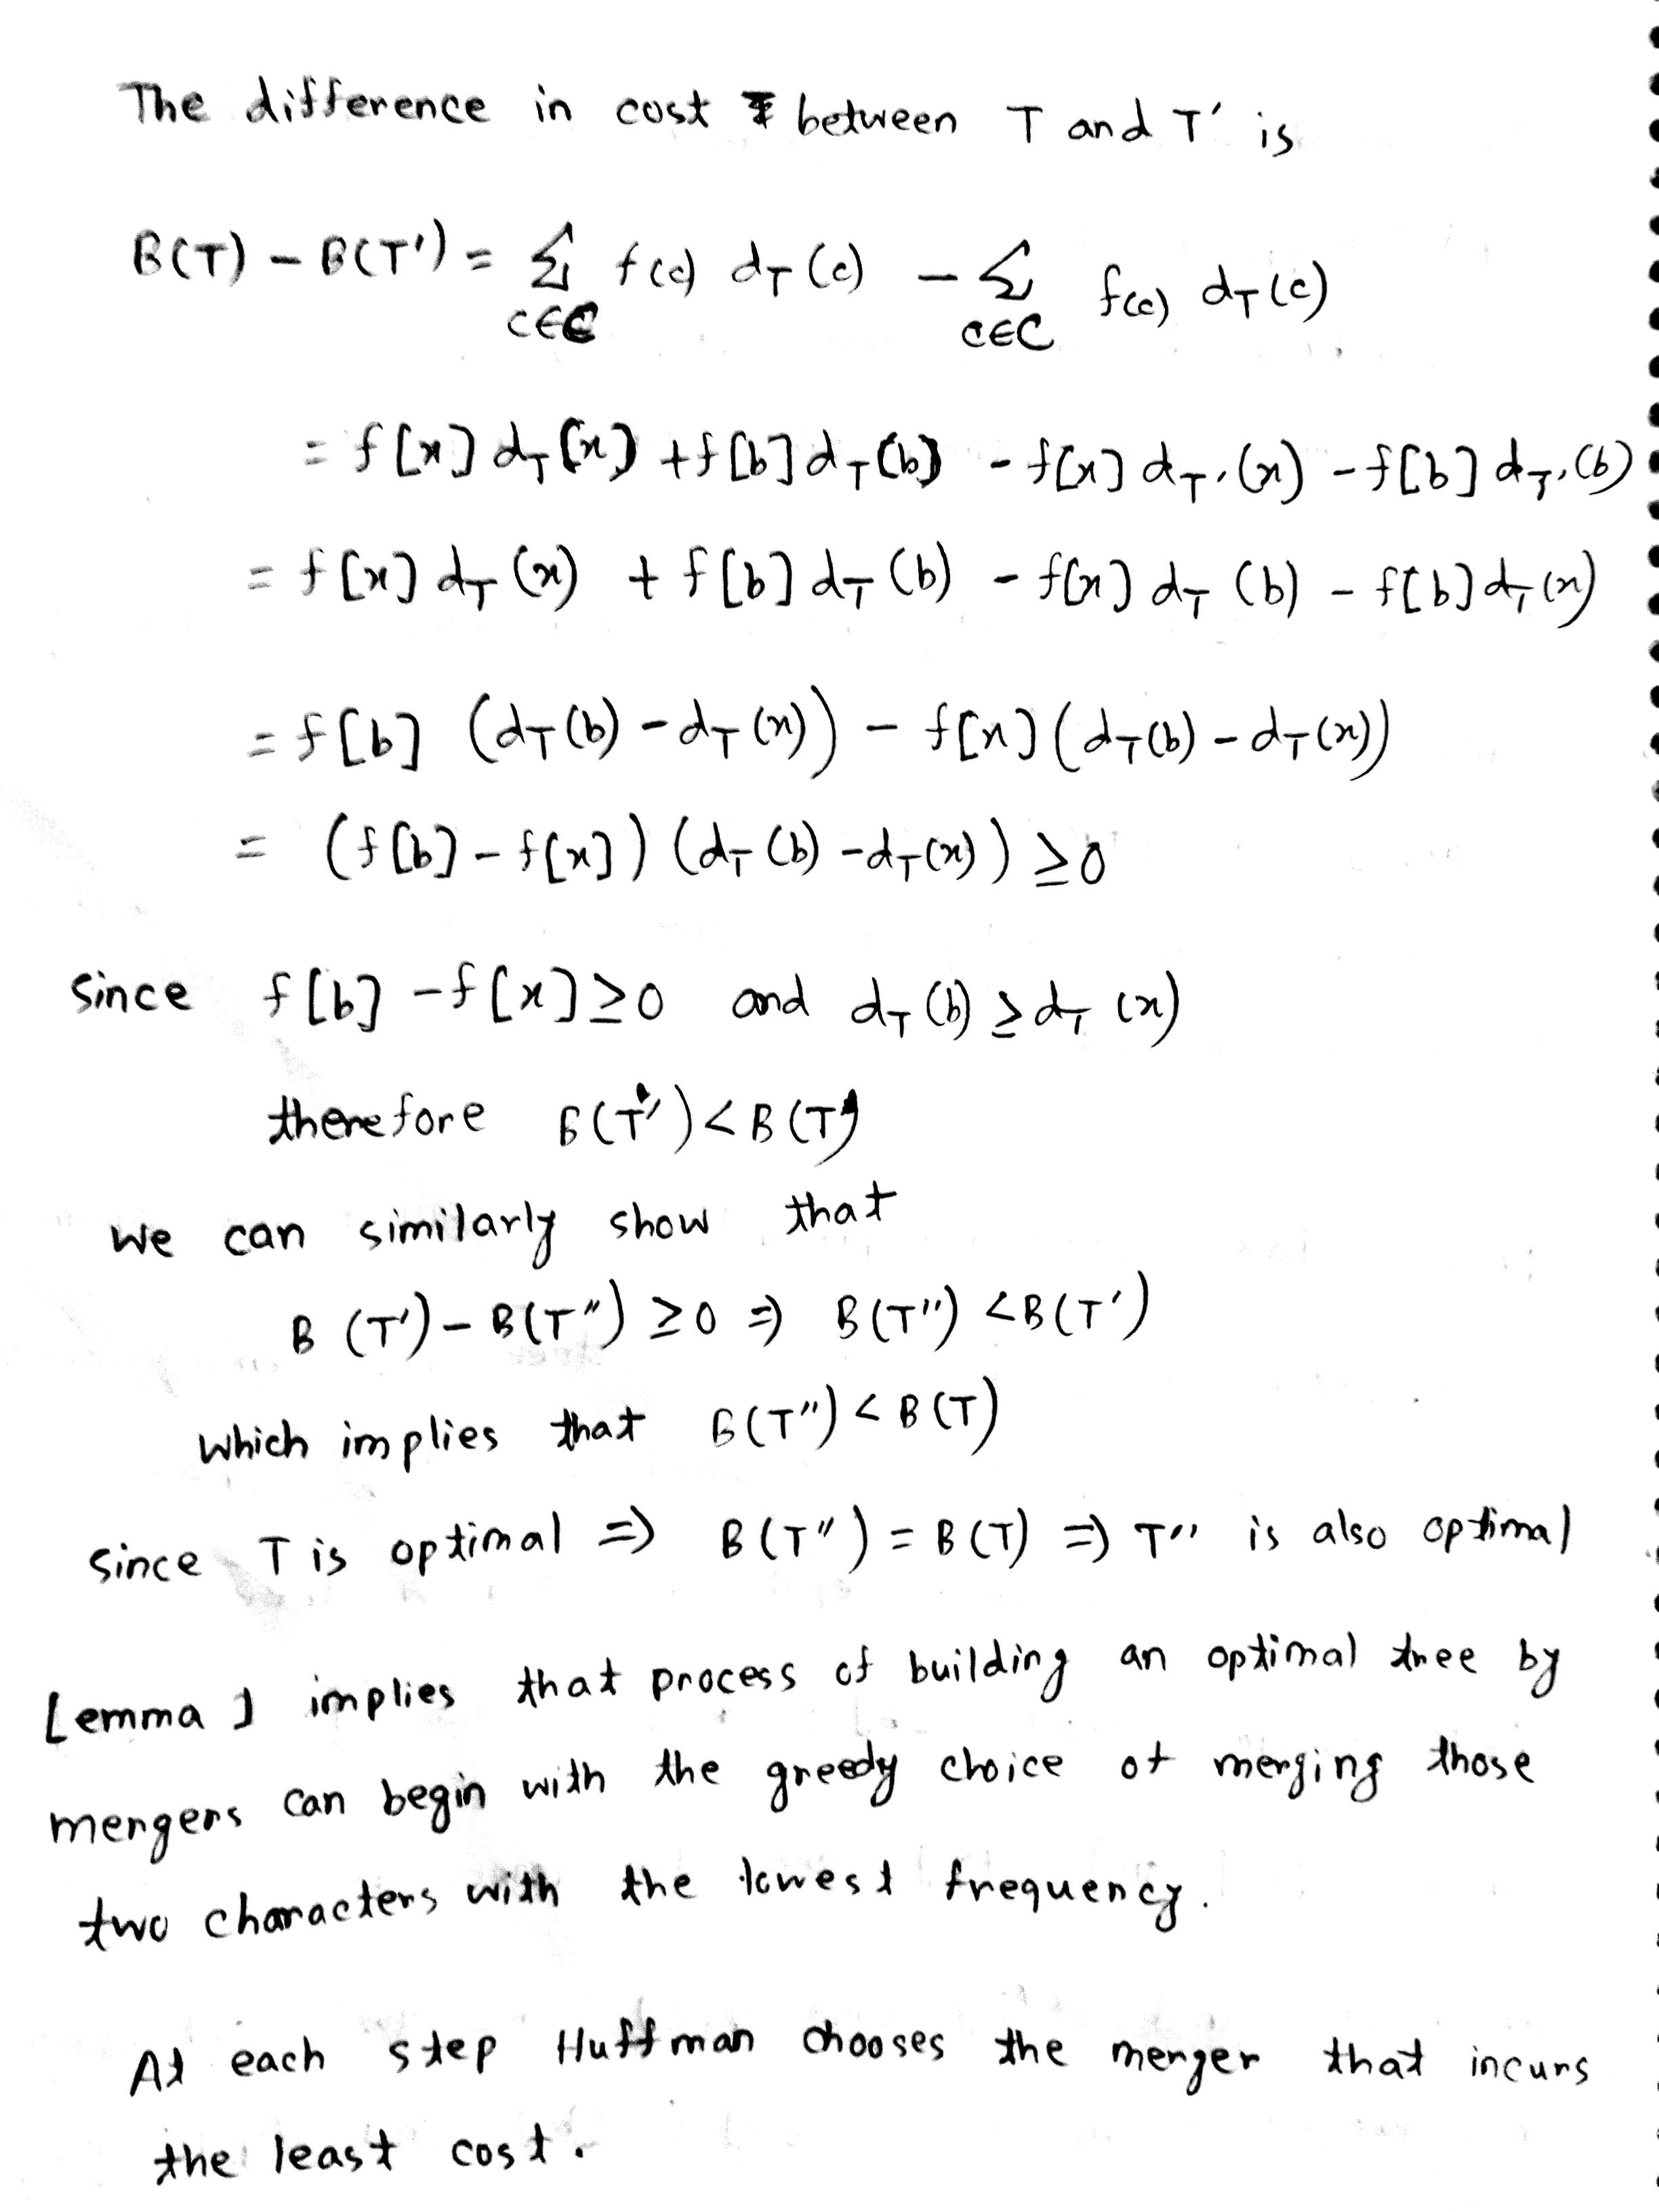 The difference in cost between T and T' is
B(T) - B(T') = ∑ f(c) d_T(c) - ∑ f(c) d_T(c)
c∈C c∈C
= f[x] d_T[x] + f[b] d_T(b) - f[x] d_T'(x) - f[b] d_T'(b)
= f[x] d_T(x) + f[b] d_T(b) - f[x] d_T(b) - f[b] d_T(x)
= f[b] (d_T(b) - d_T(x)) - f[x] (d_T(b) - d_T(x))
= (f[b] - f[x]) (d_T(b) - d_T(x)) ≥ 0
since f[b] - f[x] ≥ 0 and d_T(b) ≥ d_T(x)
therefore B(T') < B(T)
we can similarly show that
B(T') - B(T'') ≥ 0 ⇒ B(T'') < B(T')
which implies that B(T'') < B(T)
since T is optimal ⇒ B(T'') = B(T) ⇒ T'' is also optimal
Lemma 1 implies that process of building an optimal tree by
mergers can begin with the greedy choice of merging those
two characters with the lowest frequency.
At each step Huffman chooses the merger that incurs
the least cost.